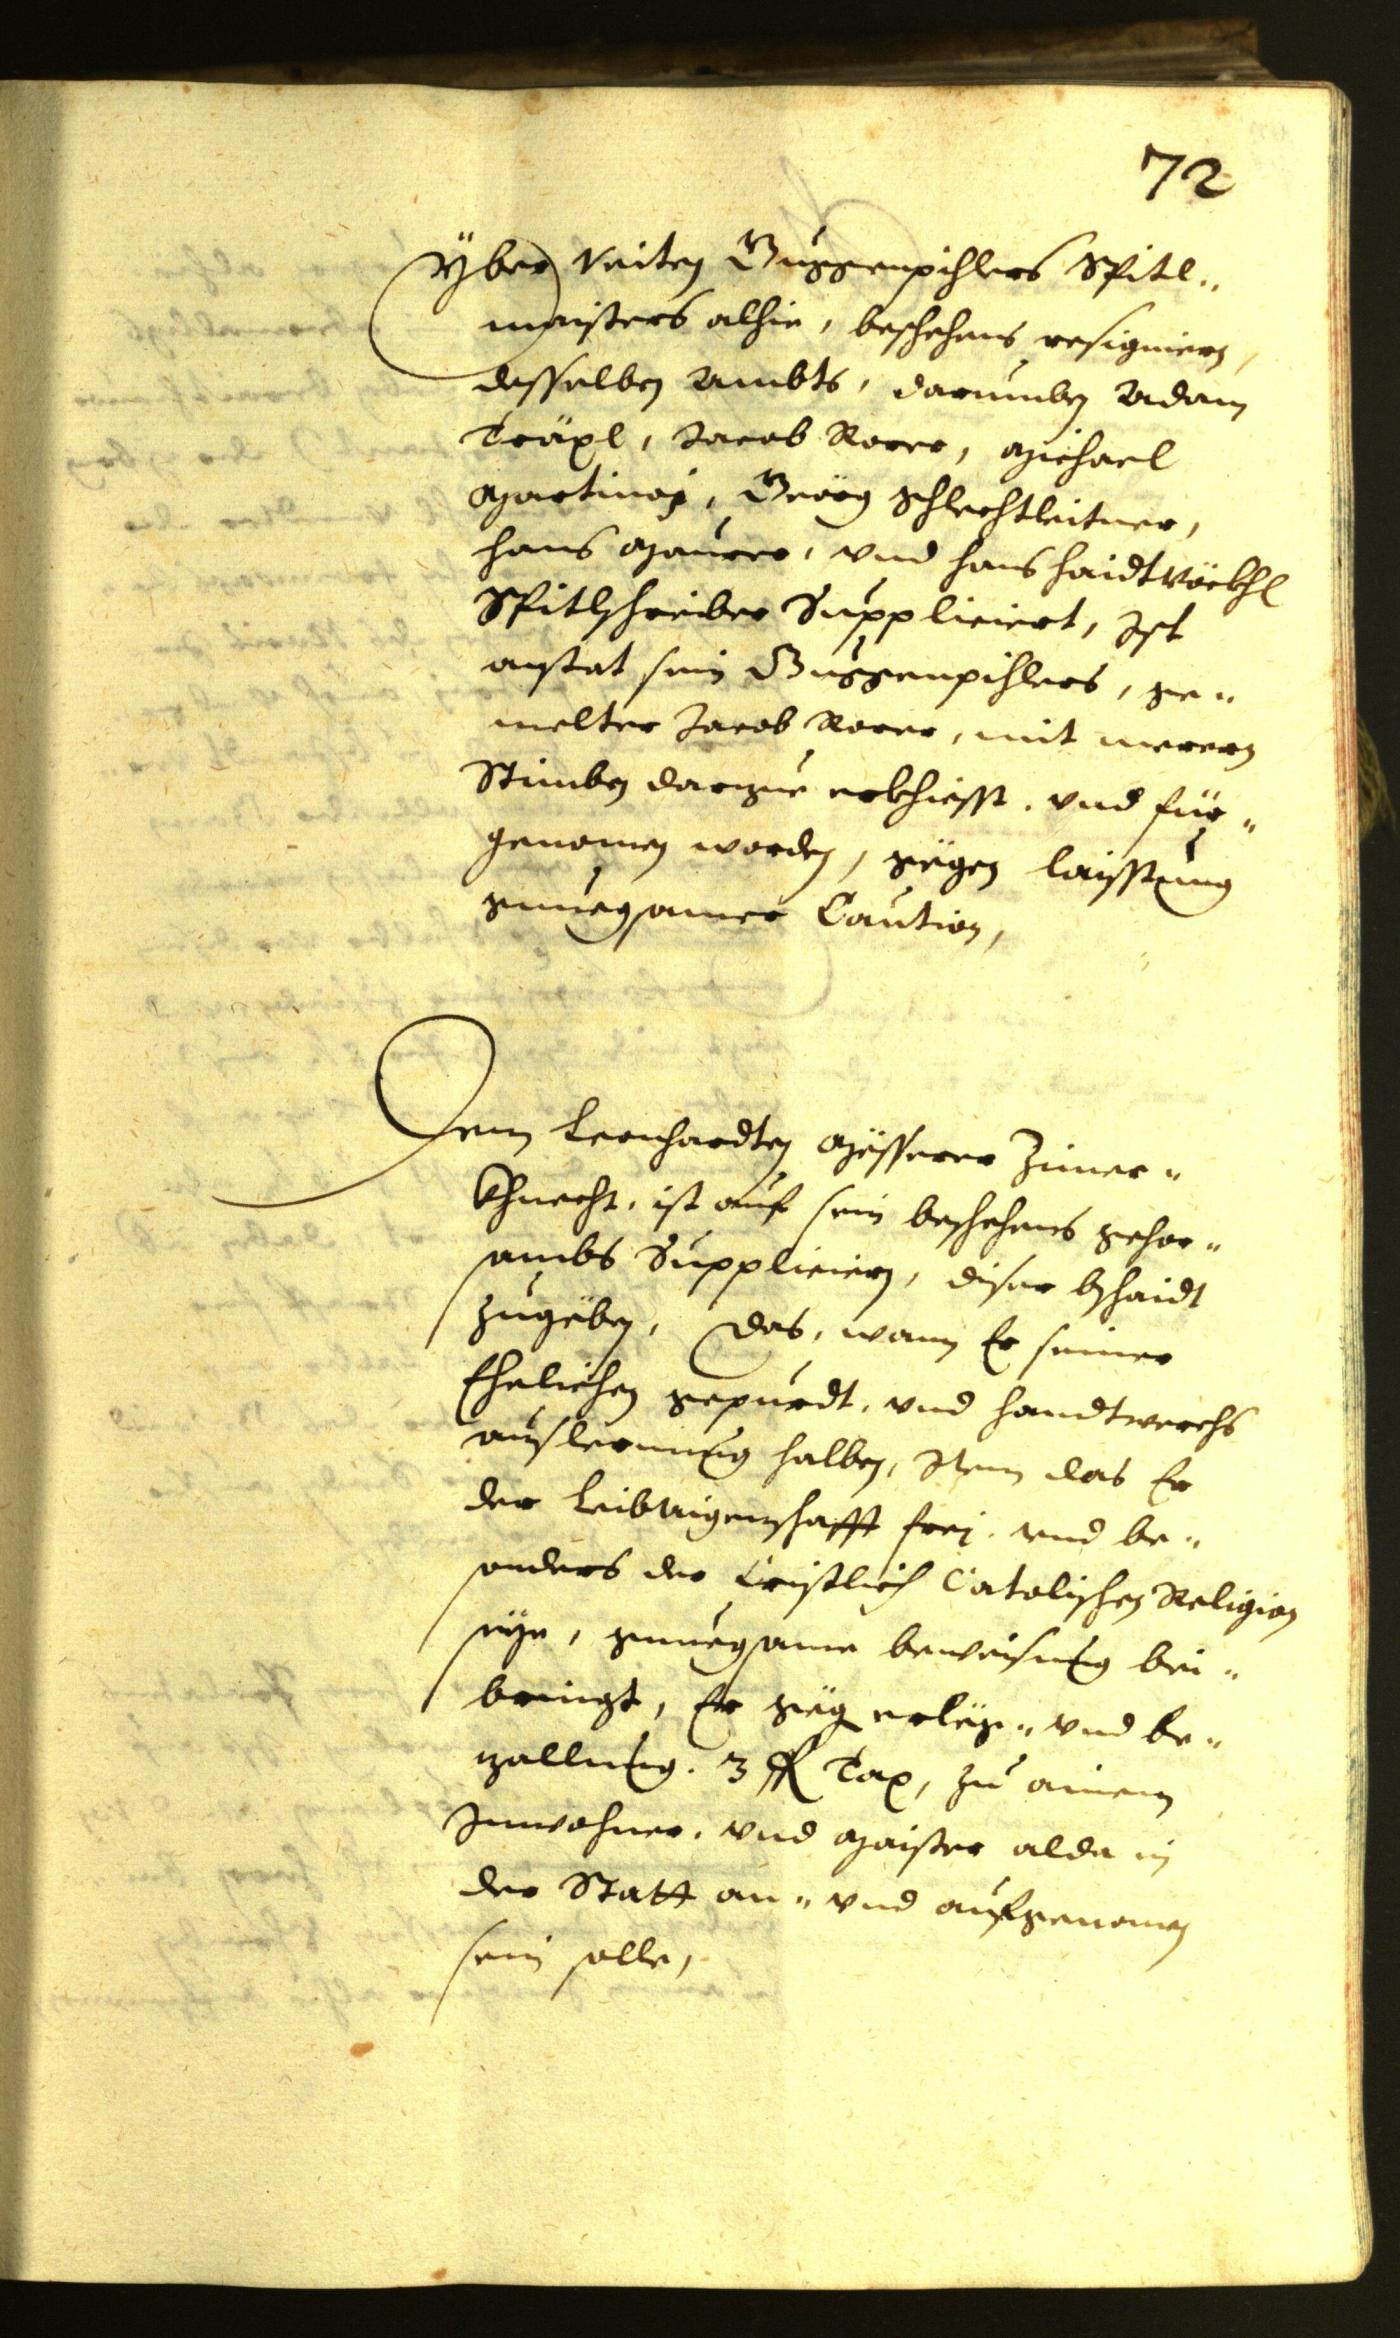 72
Yber Veiten Guggenpihlers Spitl„
maisters alhie, beschehens resigniern
desselben Ambts, darumben Adam
Träxl, Jacob Rorer, Michael
Martinoj, Geörg Schlechtleitner,
Hans Maurer, vnd Hans
Spitlschreiber Suppliciert, Ist
anstat sein Guggenpihlers, ge„
melter Jacob Rorer, mit merern
Stimben darzue erkhiesst, vnd für„
genomen worden, gegen laisstung
gnuegsamer Caution,
Dem Leonhardten Mësserer Zimer„
Khnecht, ist auf sein beschehens gehor„
sambs Supplicieren, diser bschaidt
zugëben, Das, wann Er seiner
Ehelichen gepurdt, vnd handtwerchs
auslernung halben, Item das Er
der Leibaigenschafft frej, vnd be„
sonders der Cristlich Catolischen Religion
seye, gnuegsame beweisung bei„
bringt, Er gëg erleg„ vnd be„
zallung. 3 fl Tax, zu ainem
Inwohner, vnd Maister alda in
der Statt an„ vnd aufgenomen
sein solle,